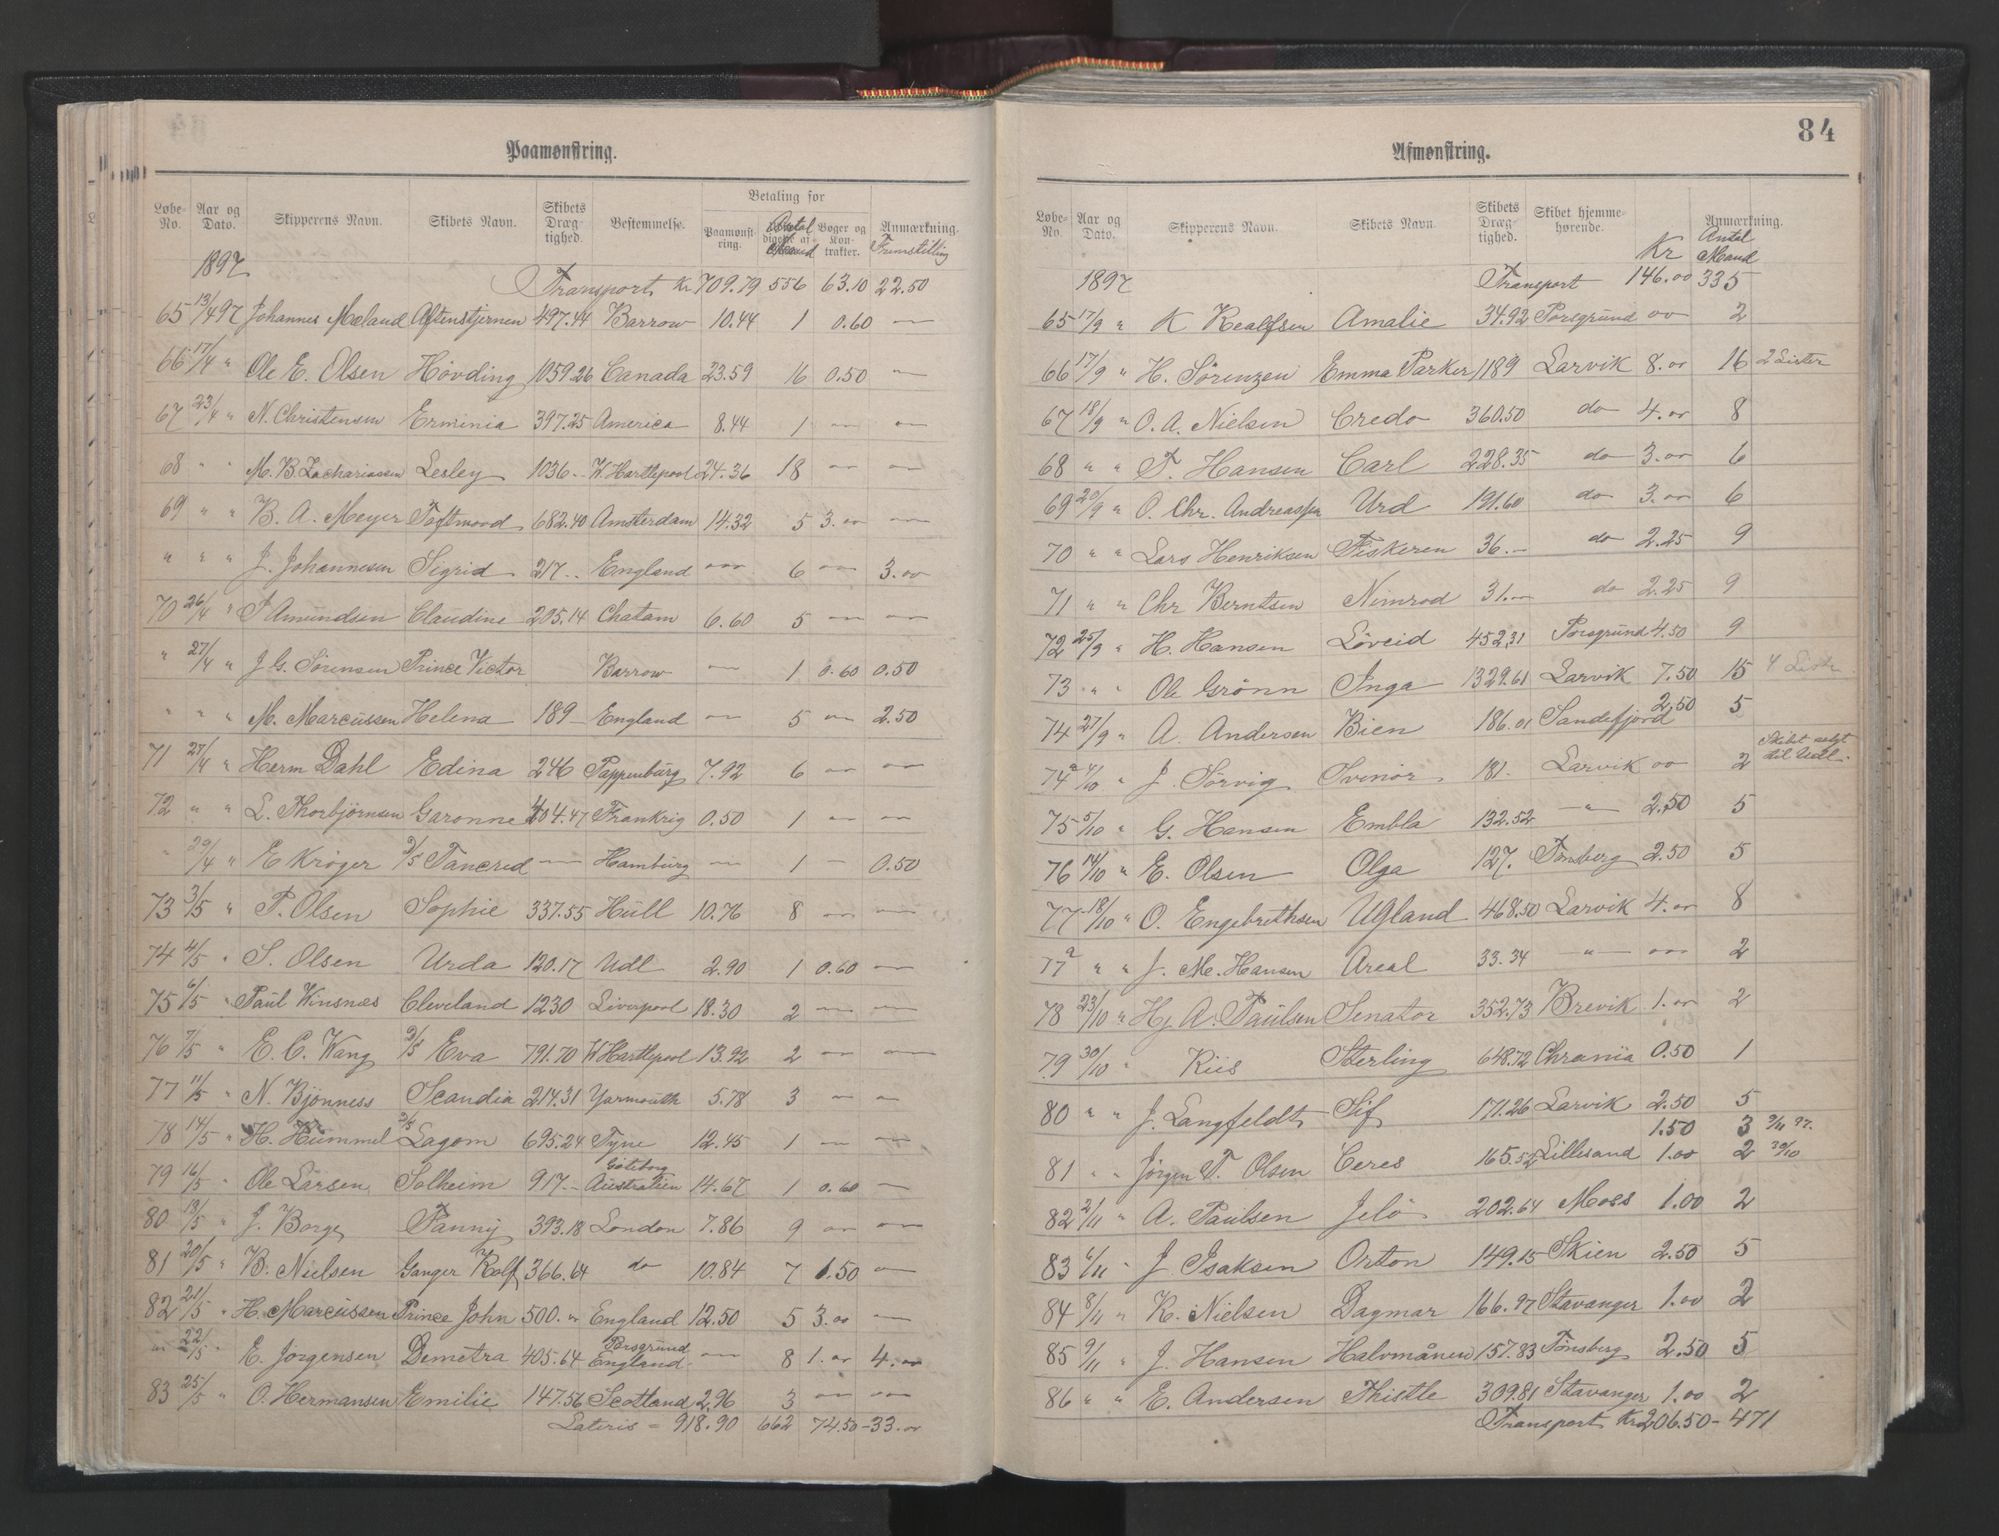 84
Paamønstring.
Løbe-No. Aar og Dato. Skipperens Navn. Skibets Navn. Skibets Dræg-tighed. Bestemmelse. Betaling for Paamønst-ring. Antal Mand Bøger og Kon-trakter. Anmærkning. Fremstilling
1897 Transport Kr 709.79 556 63.10 22.50
65 13/4 97 Johannes Mæland Aftenstjernen 497.44 Barrow 10.44 1 0.60 —
66 17/4 " Ole E. Olsen Hövding 1059.26 Canada 23.59 16 0.50 —
67 23/4 " N. Christensen Erminia 397.25 America 8.44 1 — —
68 " " M. B. Zachariassen Lesley 1036 - W. Hartlepool 24.36 18 — —
69 " " B. A. Meyer Toftwood 682.40 Amsterdam 14.32 5 3.00 —
" " " J. Johannesen Sigrid 217 - England — 6 — 3.00
70 26/4 " P Amundsen Claudine 205.14 Chatam 6.60 5 — —
" 27/4 " J. G. Sörensen Prince Victor Barrow — 1 0.60 0.50
" " " M. Marcussen Helena 189 - England — 5 — 2.50
71 27/4 " Herm Dahl Edina 246 Pappenburg 7.92 6 — —
72 " " L. Thorbjörnsen Garonne 404.47 Frankrig 0.50 1 — —
" 29/4 " E Kröger D/S Tancred — Hamburg — 1 — 0.50
73 3/5 " P. Olsen Sophie 337.55 Hull 10.76 8 — —
74 4/5 " S. Olsen Urda 120.17 Udl 2.90 1 0.60 —
75 6/5 " Paul Winsnæs Cleveland 1230 Liverpool 18.30 2 — —
76 7/5 " E. C. Wang D/S Eva 791.70 W Hartlepool 13.92 2 — —
77 11/5 " N. Bjönness Scandia 214.31 Yarmouth 5.78 3 — —
78 14/5 " H. Hummel D/S Lagom 695.24 Tyne 12.45 1 — —
79 16/5 " Ole Larsen Solheim 917 - Göteborg Australien 14.67 1 0.60 —
80 18/5 " J. Borge Fanny 393.18 London 7.86 9 — —
81 20/5 " B. Nielsen Ganger Rolf 366.64 do 10.84 7 1.50 —
82 21/5 " H. Marcussen Prince John 500. " England 12.50 5 3.00 —
" 22/5 " E. Jörgensen Demetra 405.64 Porsgrund England — 8 1.00 4.00
83 25/5 " O. Hermansen Emilie 147.56 Scotland 2.96 3 — —
Lateris = 918.90 662 74.50 - 33.00
Afmønstring.
Løbe-No. Aar og Dato. Skipperens Navn. Skibets Navn. Skibets Dræg-tighed. Skibet hjemme-hørende. Kr Anmærkning. Antal Mand
1897 Transport 146.00 335
65 17/9 " K Realfsen Amalie 34.92 Porsgrund 00 2
66 17/9 " H. Sörenzen Emma Parker 1189 Larvik 8.00 16 2 Lister
67 18/9 " O. A. Nielsen Credo 360.50 do 4.00 8
68 " " T. Hansen Carl 228.35 do 3.00 6
69 20/9 " O. Chr. Andreassen Urd 191.60 do 3.00 6
70 " " Lars Henriksen Fiskeren 36.— do 2.25 9
71 " " Chr Berntsen Nimrod 31.— do 2.25 9
72 25/9 " H. Hansen Löveid 452.31 Porsgrund 4.50 9
73 " " Ole Grönn Inga 1329.61 Larvik 7.50 15 4 Liste
74 27/9 " A. Andersen Bien 186.01 Sandefjord 2.50 5
74a 4/10 " J. Sörvig Svenör 181. Larvik 00 2 Skibet solgt til Udl.
75 5/10 " G. Hansen Embla 132.52 — " — 2.50 5
76 14/10 " E. Olsen Olga 127. Tönsberg 2.50 5
77 18/10 " O. Engebrethsen Ugland 468.50 Larvik 4.00 8
77a " " J. M. Hansen Areal 33.34 — " — 00 2
78 23/10 " Hj. A. Paulsen Senator 352.73 Brevik 1.00 2
79 30/10 " Riis Sterling 648.72 Chrania 0.50 1
80 " " J. Langfeldt Sif 171.26 Larvik 2.50 5
1.50 3 9/11 97.
81 " " Jörgen T. Olsen Ceres 165.52 Lillesand 1.00 2 30/10
82 2/11 " A. Paulsen Jelö 202.64 Moss 1.00 2
83 6/11 " J. Isaksen Orton 149.15 Skien 2.50 5
84 8/11 " K. Nielsen Dagmar 166.97 Stavanger 1.00 2
85 9/11 " J. Hansen Halvmånen 157.83 Tönsberg 2.50 5
86 " " E. Andersen Thistle 309.81 Stavanger 1.00 2
Transport Kr 206.50 - 471